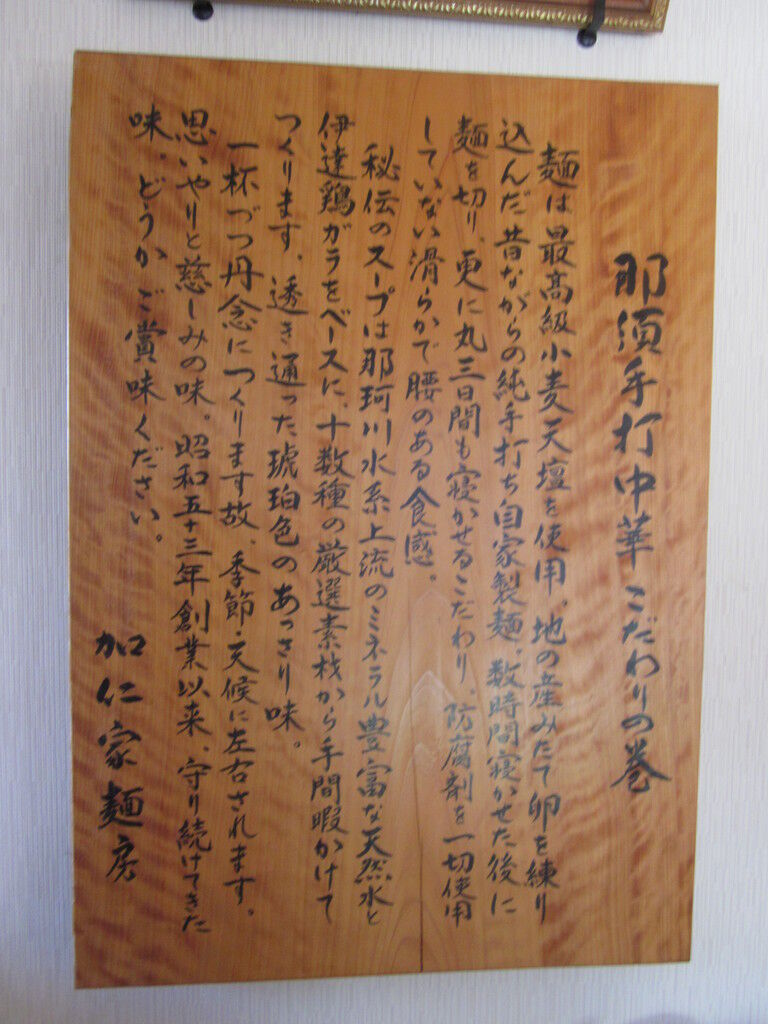 那須手打中華 こだわりの巻
麺は最高級小麦天壇を使用、地の産みたて卵を練り
込んだ昔ながらの純手打ち自家製麺。数時間寝かせた後に
麺を切り、更に丸三日間も寝かせるこだわり、防腐剤を一切使用
していない滑らかで腰のある食感。
秘伝のスープは那珂川水系上流のミネラル豊富な天然水と
伊達鶏ガラをベースに、十数種の厳選素材から手間暇かけて
つくります、透き通った琥珀色のあっさり味。
一杯づつ丹念につくります故、季節・天候に左右されます。
思いやりと慈しみの味。昭和五十三年創業以来、守り続けてきた
味、どうかご賞味ください。
加仁家麺房